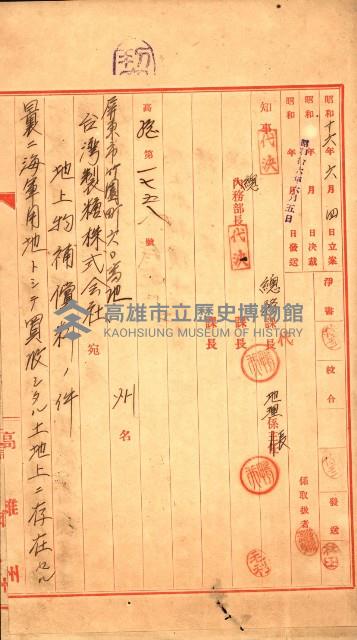 昭和十六年六月四日立案
昭和 年 月 日決裁
昭和 年 月 日發送
昭和十六年六月五日
淨書
校合
發送
知事
代決
總務部長
代決
總務課長
課長
課長
地理係長
係
取扱者
高總第一七五八號
屏東市竹園町六〇番地
台灣製糖株式会社 宛
外 名
地上物補償料ノ件
曩ニ海軍用地トシテ買收シタル土地上ニ存在セル
高雄州
高雄市立歷史博物館
KAOHSIUNG MUSEUM OF HISTORY